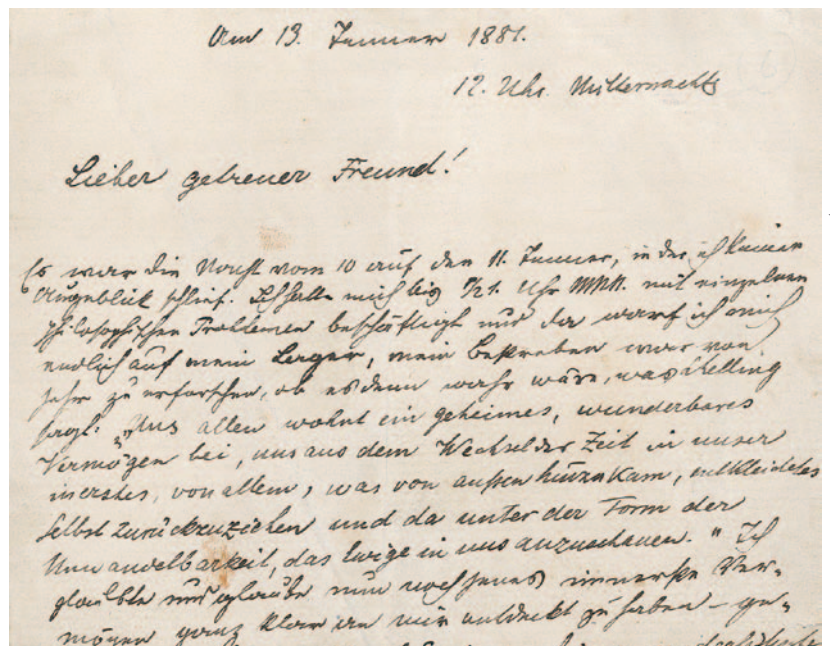 Am 13. Jänner 1881.
12. Uhr. Mitternachts
Lieber getreuer Freund!
Es war die Nacht vom 10 auf den 11. Jänner, in der ich keinen
Augenblick schlief. Ich hatte mich bis ½1. Uhr mit einzelnen
philosophischen Problemen beschäftigt und da warf ich mich
endlich auf mein Lager, mein Bestreben war vor'm
Jahr zu erforschen, ob es denn wahr wäre, was Schelling
sagt: „Uns allen wohnt ein geheimes, wunderbares
Vermögen bei, uns aus dem Wechsel der Zeit in unser
innerstes, von allem, was von außen hinzukam, entkleidetes
Selbst zurückzuziehen und da unter der Form der
Unwandelbarkeit, das Ewige in uns anzuschauen." Ich
glaubte und glaube nun noch jenes innerste Ver-
mögen ganz klar an mir entdeckt zu haben – ge-